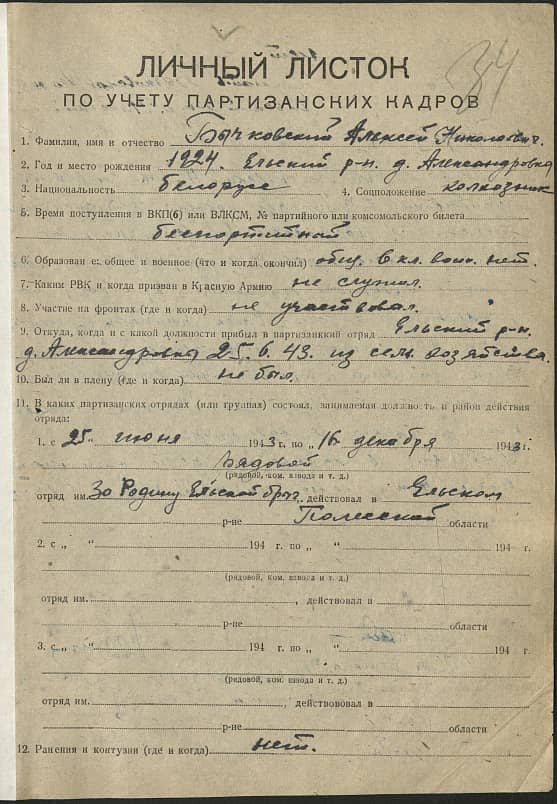 34
ЛИЧНЫЙ ЛИСТОК
ПО УЧЕТУ ПАРТИЗАНСКИХ КАДРОВ
1. Фамилия, имя и отчество Бычковский Алексей Николаевич.
2. Год и место рождения 1924. Ельский р-н. д. Александровка
3. Национальность белорус 4. Соцположение колхозник
5. Время поступления в ВКП(б) или ВЛКСМ, № партийного или комсомольского билета
беспартийный
6. Образован е: общее и военное (что и когда окончил) общ. 6 кл. воен. нет.
7. Каким РВК и когда призван в Красную Армию не служил.
8. Участие на фронтах (где и когда) не участвовал.
9. Откуда, когда и с какой должности прибыл в партизанкий отряд Ельский р-н.
д. Александровка 25.6.43. из сель. хозяйства.
10. Был ли в плену (где и когда) не был.
11. В каких партизанских отрядах (или группах) состоял, занимаемая должность и район действия
отряда:
1. с 25 „ июня 1943 г. по „ 16 декабря 1943 г.
Рядовой
(рядовой, ком. взвода и т. д.)
отряд им. За Родину Ельской бриг., действовал в Ельском
р-не Полесской области
2. с „ “ 194 г. по „ “ 194 г.
(рядовой, ком. взвода и т. д.)
отряд им. , действовал в
р-не области
3. с „ “ 194 г. по „ “ 194 г.
(рядовой, ком. взвода и т. д.)
отряд им. , действововал в
р-не области
12. Ранения и контузии (где и когда) нет.